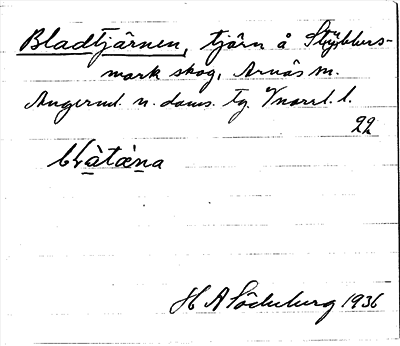 Bladtjärnen, tjärn å Stybbers-
mark skog, Arnäs sn.
Ångerml. n. doms. tg. Vnorrl. l.
22
H A Söderberg 1936